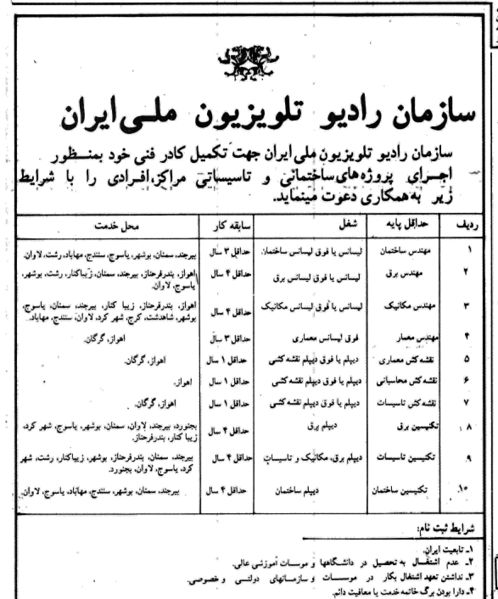 سازمان رادیو تلویزیون ملی ایران
سازمان رادیو تلویزیون ملی ایران جهت تکمیل کادر فنی خود بمنظور
اجرای پروژه‌های ساختمانی و تاسیساتی مراکز، افرادی را با شرایط
زیر به همکاری دعوت مینماید.
ردیف حداقل پایه شغل سابقه کار محل خدمت
۱ مهندس ساختمان لیسانس یا فوق لیسانس ساختمان حداقل ۳ سال بیرجند، سمنان، بوشهر، یاسوج، سنندج، مهاباد، رشت، لاوان.
۲ مهندس برق لیسانس یا فوق لیسانس برق حداقل ۴ سال اهواز، بندرفرحناز، بیرجند، سمنان، زیباکنار، رشت، بوشهر،
یاسوج، لاوان.
۳ مهندس مکانیک لیسانس یا فوق لیسانس مکانیک حداقل ۴ سال اهواز، بندرفرحناز، زیبا کنار، بیرجند، سمنان، یاسوج،
بوشهر، شاهدشت، کرج، شهر کرد، لاوان، سنندج، مهاباد.
۴ مهندس معمار فوق لیسانس معماری حداقل ۳ سال اهواز، گرگان.
۵ نقشه کش معماری دیپلم یا فوق دیپلم نقشه کشی حداقل ۱ سال اهواز، گرگان.
۶ نقشه کش محاسباتی دیپلم یا فوق دیپلم نقشه کشی حداقل ۱ سال اهواز.
۷ نقشه کش تاسیسات دیپلم یا فوق دیپلم نقشه کشی حداقل ۱ سال اهواز، گرگان.
۸ تکنیسین برق دیپلم برق حداقل ۴ سال بجنورد، بیرجند، لاوان، سمنان، بوشهر، یاسوج، شهر کرد،
زیبا کنار، بندرفرحناز.
۹ تکنیسین تاسیسات دیپلم برق، مکانیک و تاسیسات حداقل ۴ سال بیرجند، سمنان، بندرفرحناز، بوشهر، زیباکنار، رشت، شهر
کرد، یاسوج، لاوان، بجنورد.
۱۰ تکنیسین ساختمان دیپلم ساختمان حداقل ۴ سال بیرجند، سمنان، بوشهر، سنندج، مهاباد، یاسوج، لاوان.
شرایط ثبت نام:
۱ـ تابعیت ایران.
۲ـ عدم اشتغال به تحصیل در دانشگاهها و موسسات آموزشی عالی.
۳ـ نداشتن تعهد اشتغال بکار در موسسات و سازمانهای دولتی و خصوصی.
۴ـ دارا بودن برگ خاتمه خدمت یا معافیت دائم.